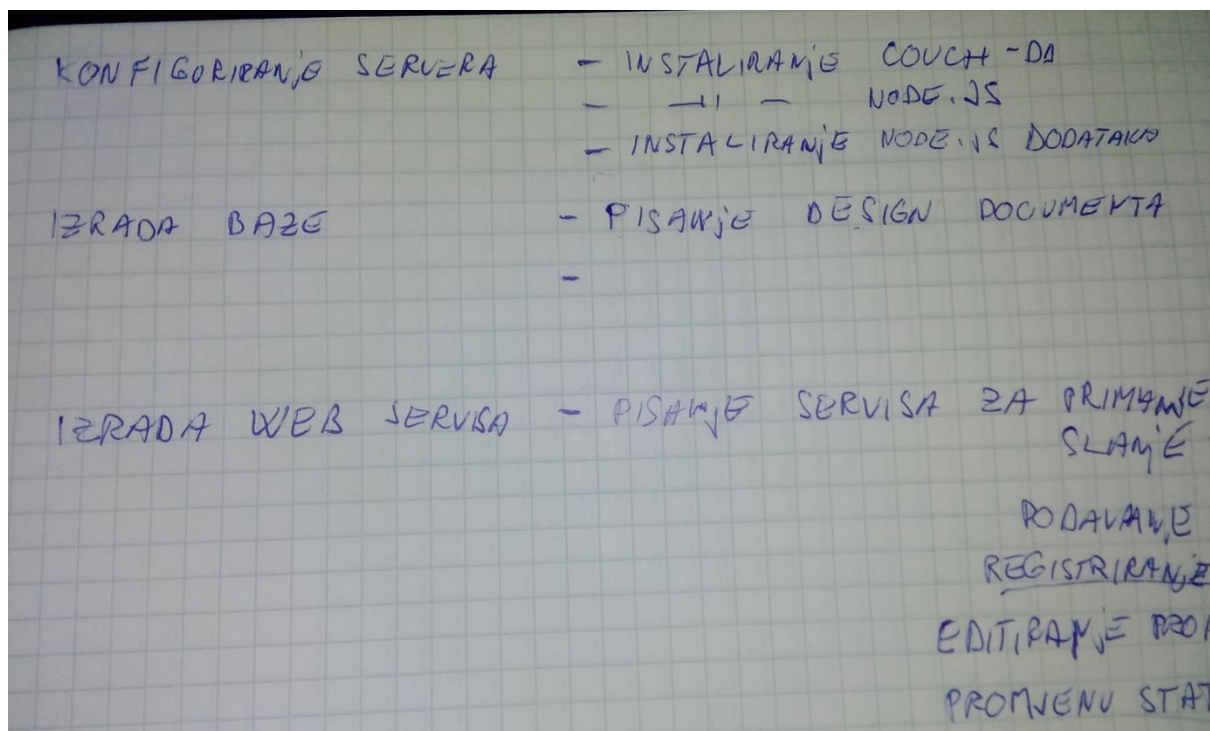 KONFIGORIRANjE SERVERA - INSTALIRANjE COUCH-DB
- -||- NODE.JS
- INSTALIRANjE NODE.JS DODATAKA
IZRADA BAZE - PISANjE DESIGN DOCUMENTA
-
IZRADA WEB SERVISA - PISANjE SERVISA ZA PRIMANJE
SLANjE
DODAVANjE
REGISTRIRANjE
EDITIRANjE
PROMJENU STAT